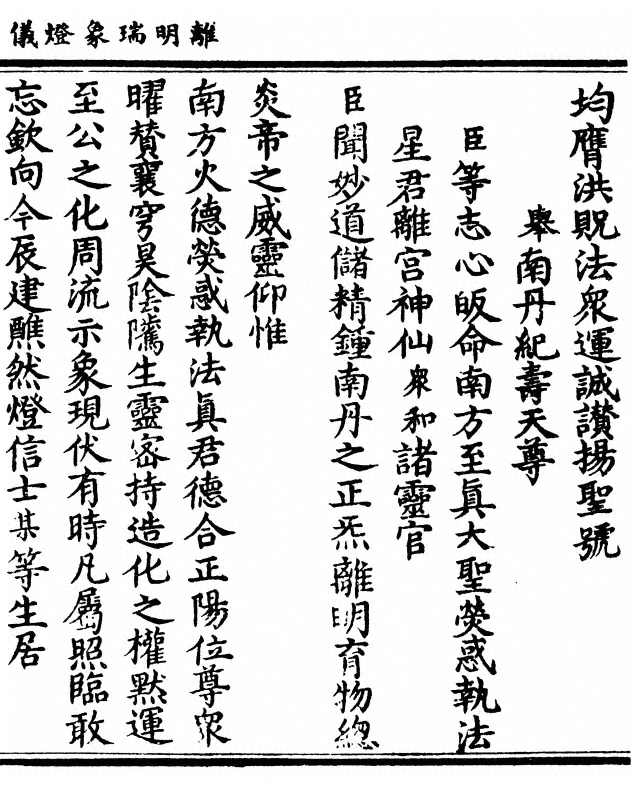 離明瑞象燈儀
均膺洪貺法衆運誠讃揚聖號
舉南丹紀壽天尊
臣等志心皈命南方至眞大聖熒惑執法
星君離宮神仙衆和諸靈官
臣聞妙道儲精鍾南丹之正炁離明育物總
炎帝之威靈仰惟
南方火德熒惑執法眞君德合正陽位尊衆
曜賛襄穹昊陰騭生靈密持造化之權默運
至公之化周流示象現伏有時凡屬照臨敢
忘欽向今辰建醮然燈信士某等生居